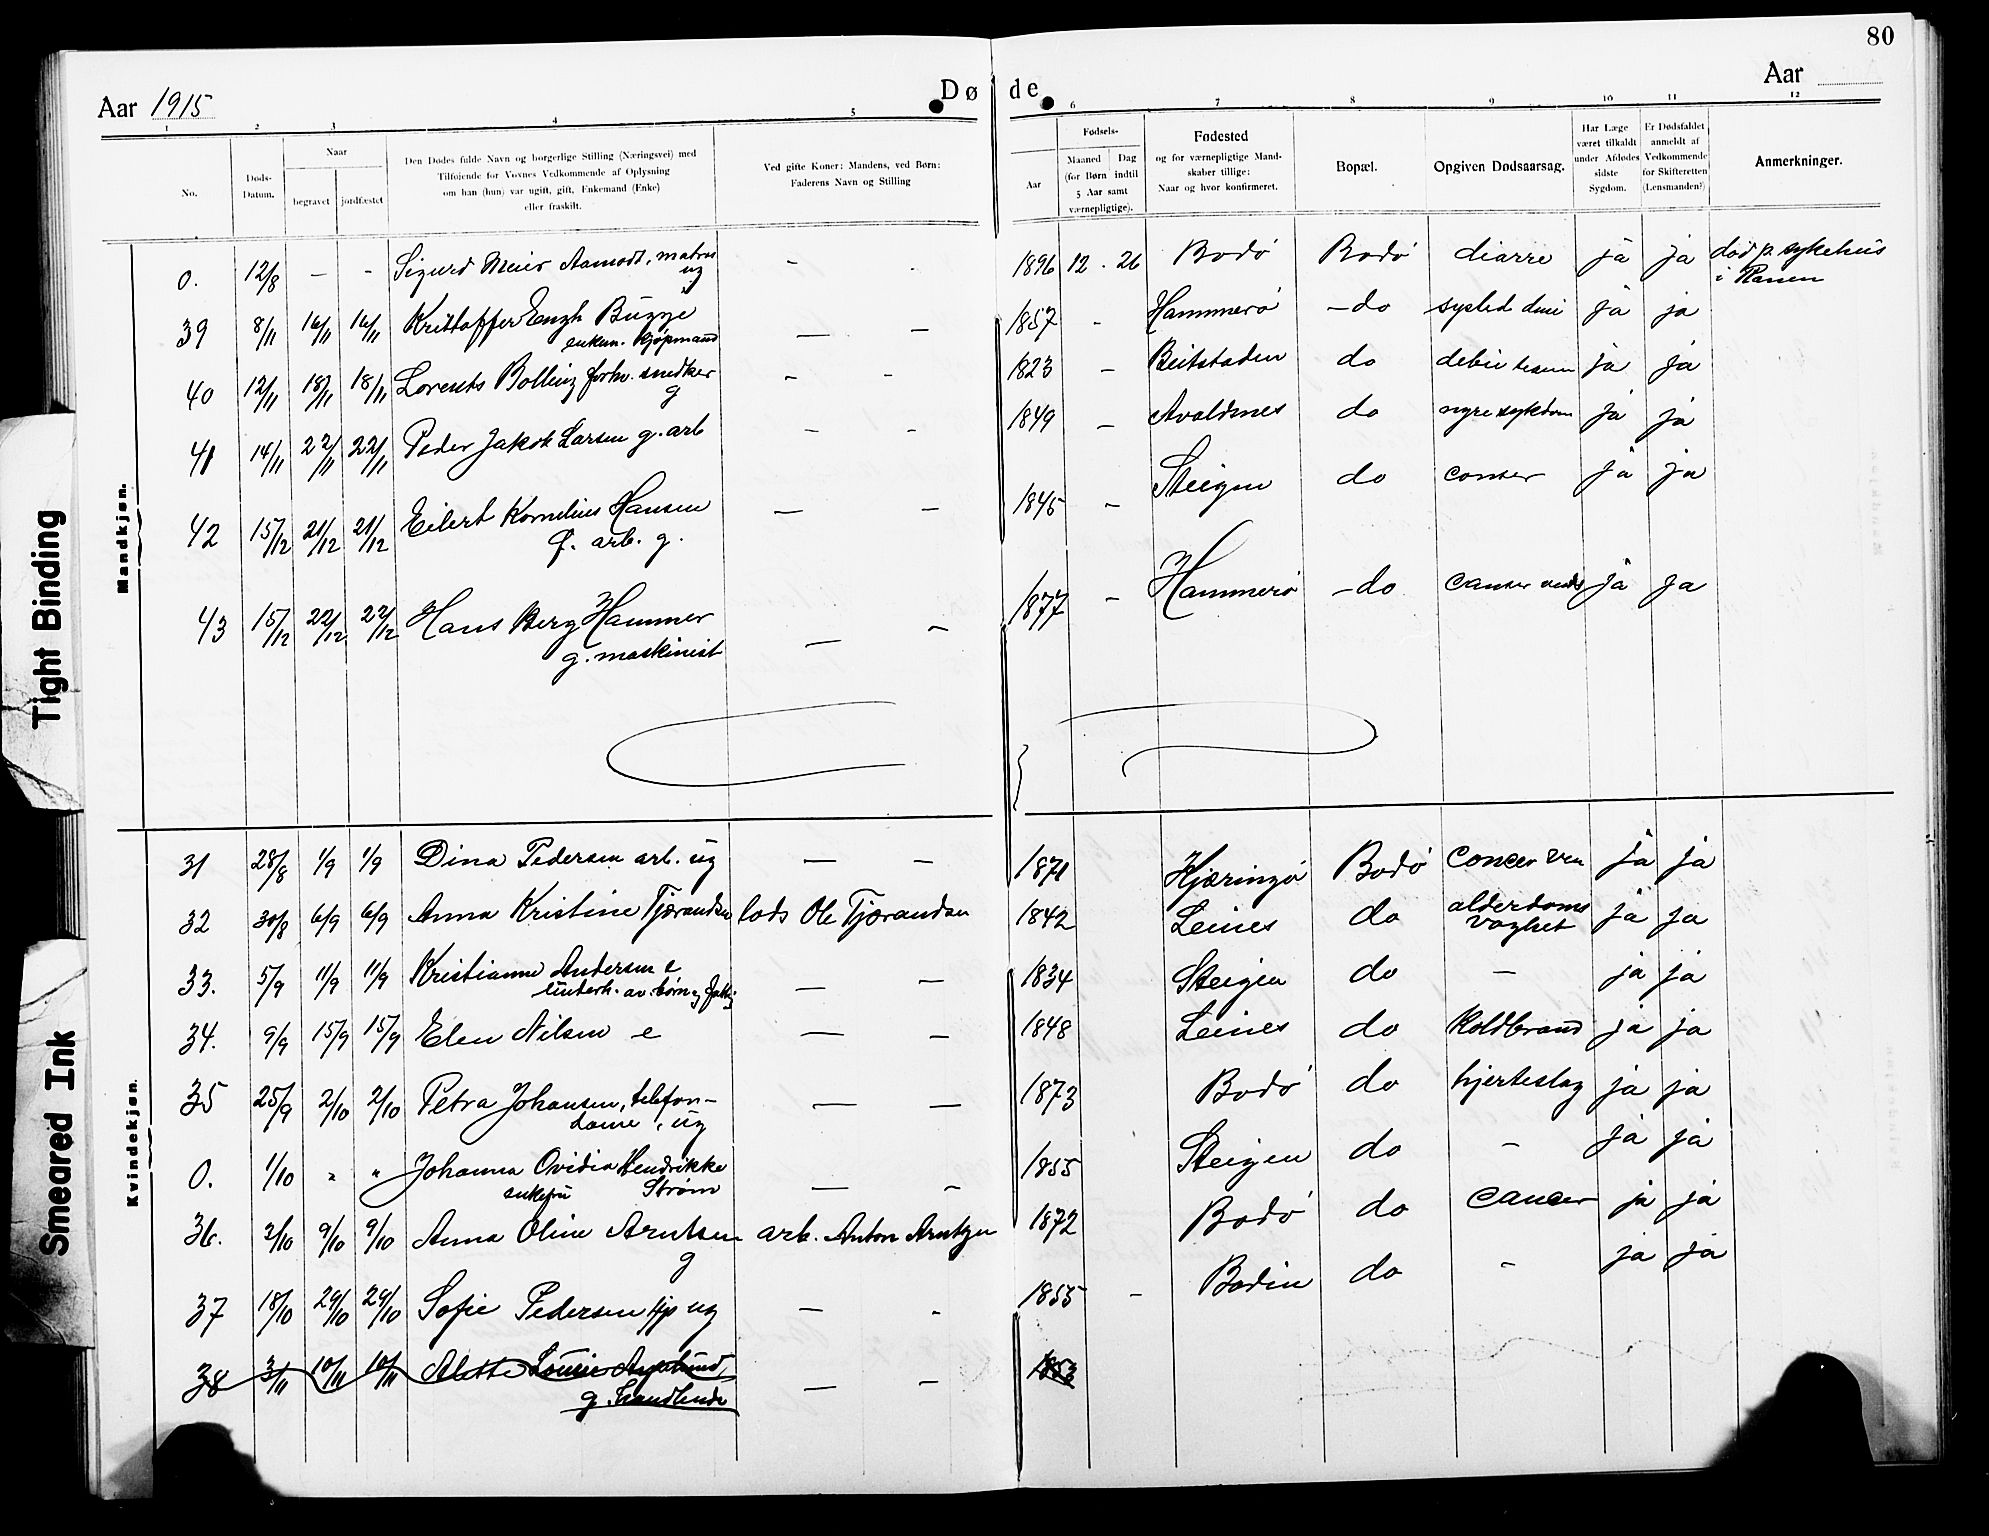 80
Aar 1915
Døde
Aar
1 2 3 4 5 6 7 8 9 10 11 12
No.
Døds-
Datum.
Naar
begravet
jordfæstet
Den Dødes fulde Navn og borgerlige Stilling (Næringsvei) med
Tilføiende for Voxnes Vedkommende af Oplysning
om han (hun) var ugift, gift, Enkemand (Enke)
eller fraskilt.
Ved gifte Koner: Mandens, ved Børn:
Faderens Navn og Stilling
Aar
Fødsels-
Maaned Dag
(for Børn indtil
5 Aar samt
værnepligtige).
Fødested
og for værnepligtige Mand-
skaber tillige:
Naar og hvor konfirmeret.
Bopæl.
Opgiven Dødsaarsag.
Har Læge
været tilkaldt
under Afdødes
sidste
Sygdom.
Er Dødsfaldet
anmeldt af
Vedkommende
for Skifteretten
(Lensmanden?)
Anmerkninger.
Mandkjøn.
0. 12/8 - - Sigurd Meier Aamodt, matros - - 1896 12 . 26 Bodø Bodø diarre ja ja død p. sykehus
ug i Ranen
39 8/11 16/11 16/11 Kristoffer Bugge — — 1857 - Hammerø - do ja ja
enkem. kjøpmand
40 12/11 18/11 18/11 Lorents Bolling forhv. snedker - - 1823 - Beitstaden do ja ja
g
41 14/11 22/11 22/11 Peder Jakob Larsen g. arb - - 1849 - Avaldsnes do nyresykdom ja ja
42 15/12 21/12 21/12 Eilert Kornelius Hansen — — 1845 - Steigen do cancer ja ja
f. arb. g.
43 15/12 22/12 22/12 Hans Berg Hammer — - 1877 - Hammerø - do cancer ja ja
g. maskinist
Kvindekjøn.
31 28/8 1/9 1/9 Dina Pedersen arb. ug — — 1871 Kjæringø Bodø cancer ven ja ja
32 30/8 6/9 6/9 Anna Kristine Tjærandsen lods Ole Tjærandsen 1842 Leines do alderdoms ja ja
vaghet
33. 5/9 11/9 11/9 Kristianne Andersen e — — 1834 Steigen do - ja ja
underh. av børn
34. 9/9 15/9 15/9 Elen Nilsen e — — 1848 Leines do Koldbrand ja ja
35 25/9 2/10 2/10 Petra Johansen, telefon- — — 1873 Bodø do hjerteslag ja ja
dame, ug
0. 1/10 " " Johanna Ovidia Hendrikke — - 1855 Steigen do - ja ja
enkefru Strøm
36. 3/10 9/10 9/10 Anna Oline Arntsen arb. Anton Arntzen 1872 Bodø do cancer ja ja
g
37 18/10 29/10 29/10 Sofie Pedersen ug — - 1855 - Bodin do - ja ja
38 3/11 10/11 10/11 Alette Lovise — — 1853
g. handlende
Tight Binding
Smeared Ink